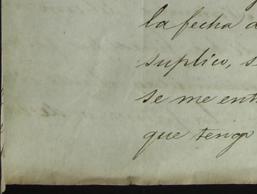 la fecha
suplico,
se me
que tengo